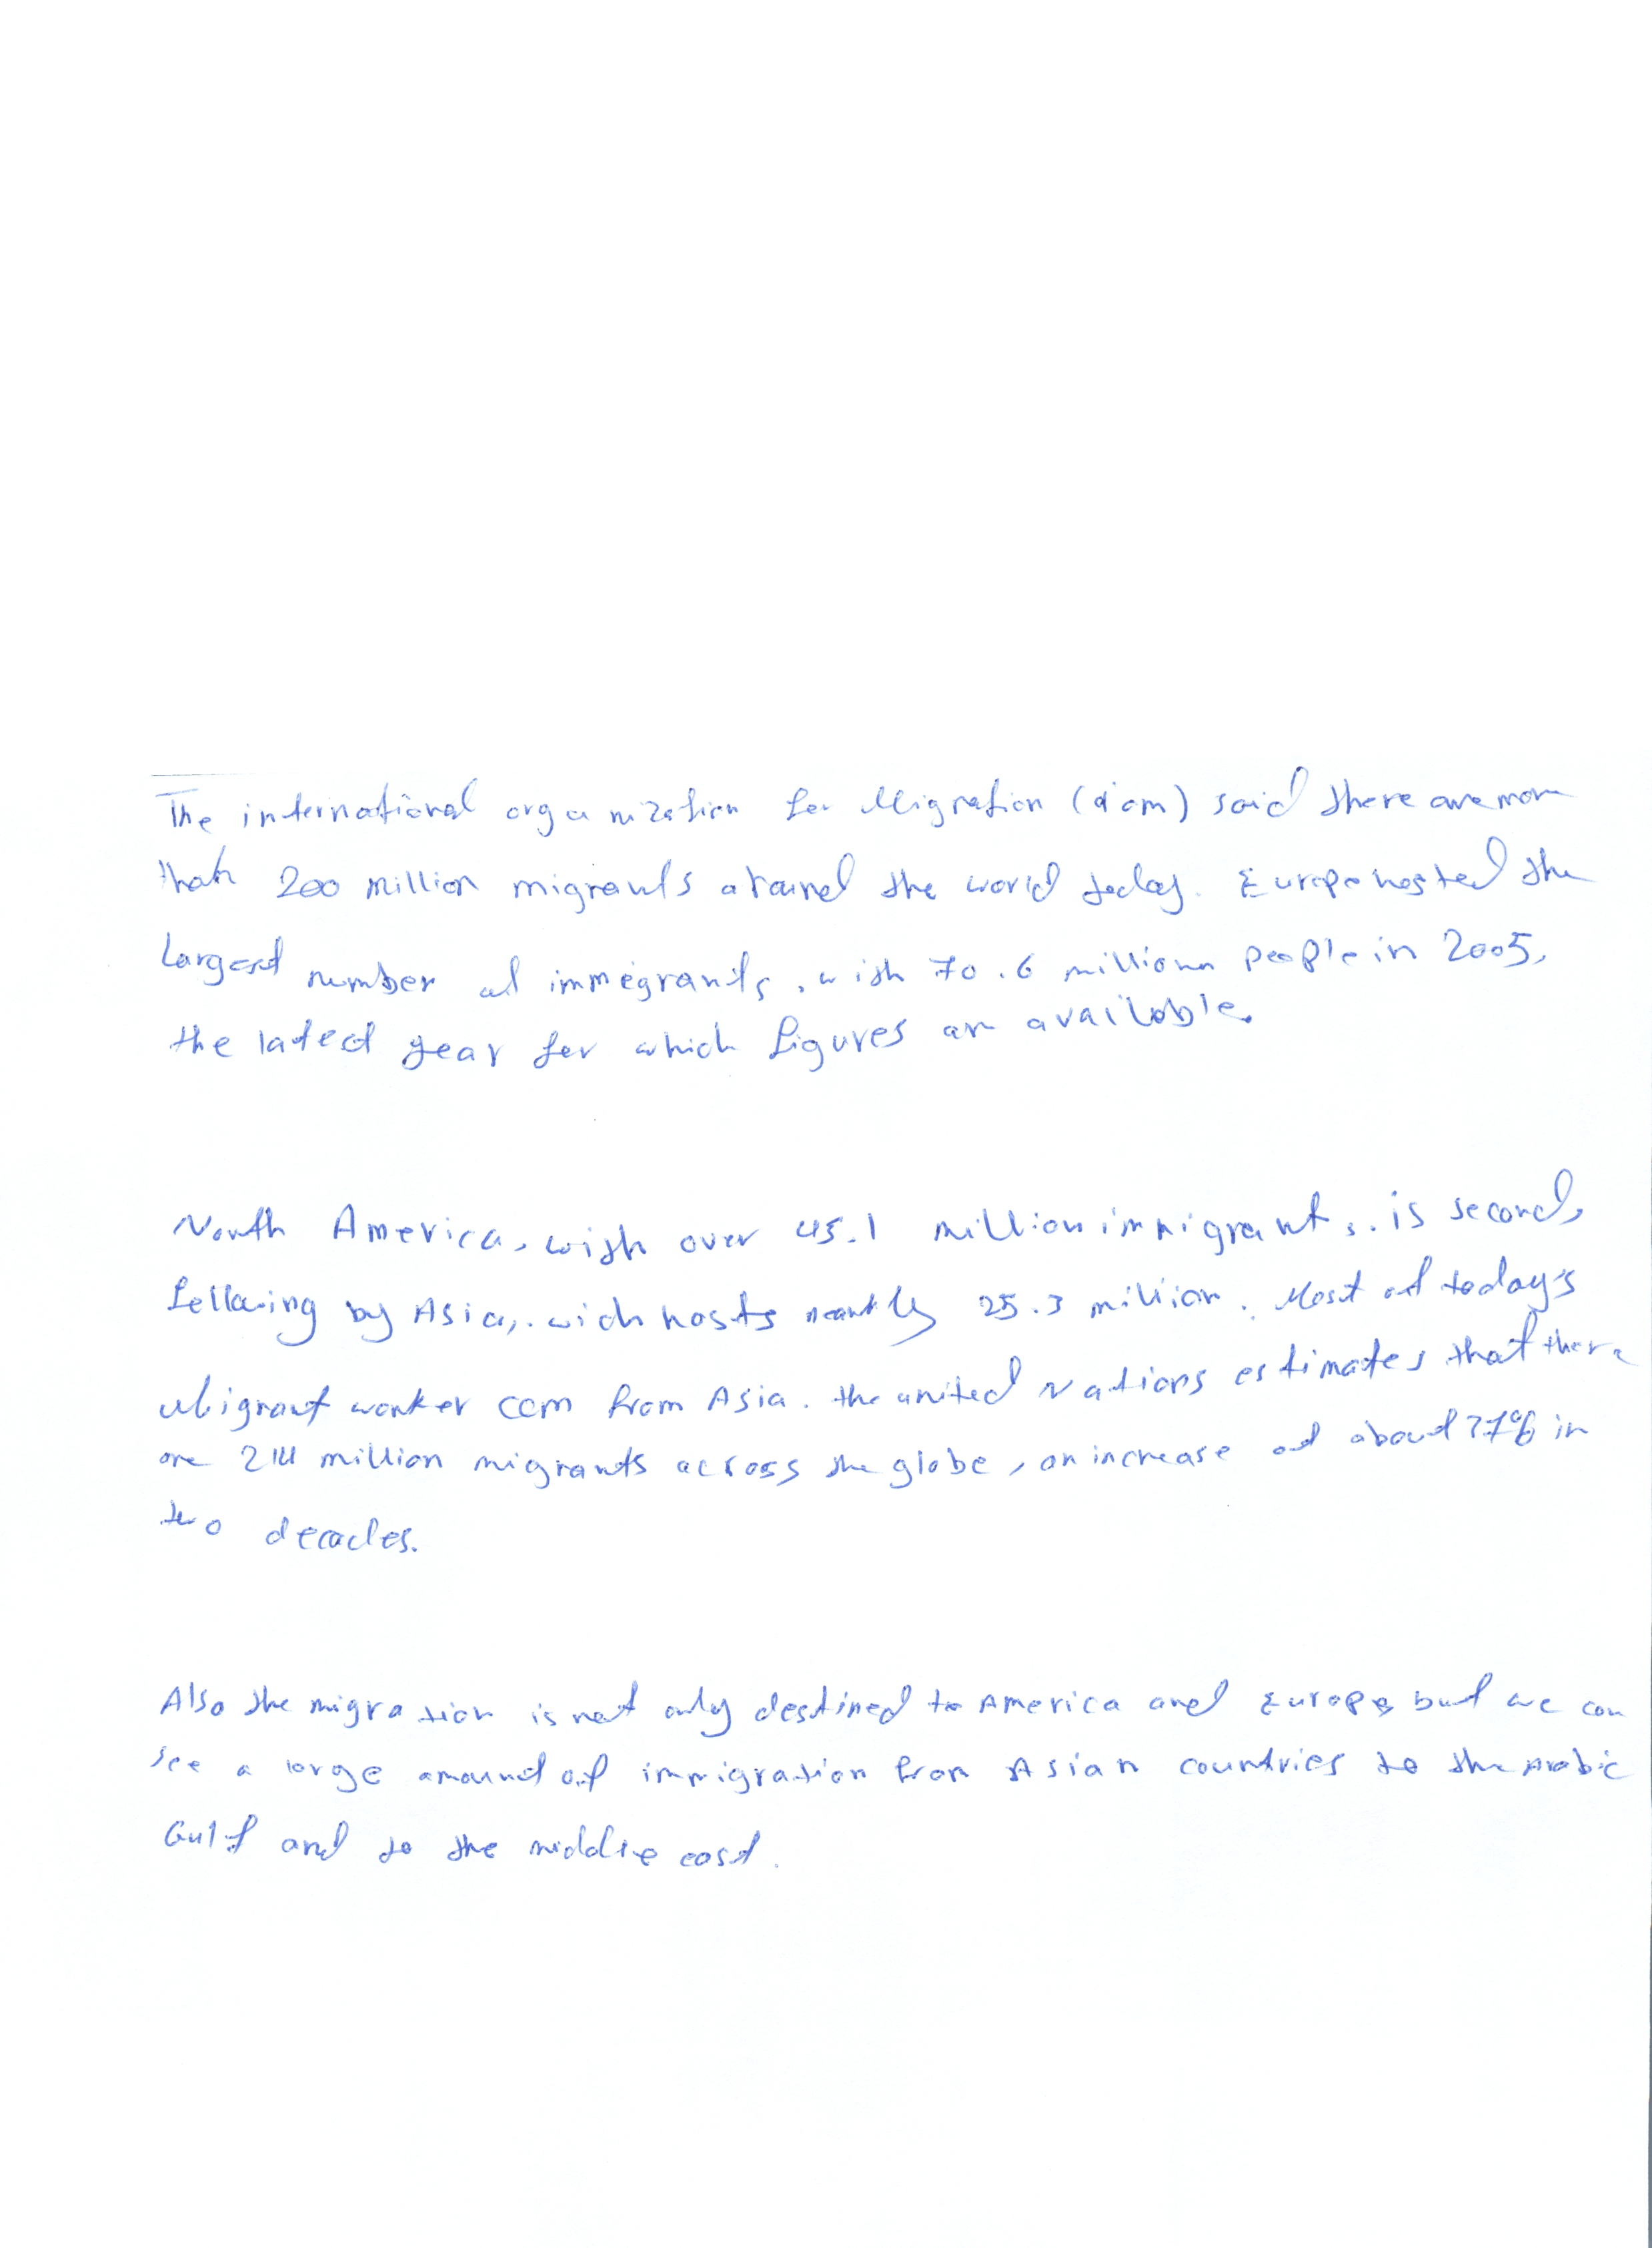 The international organization for Migration (iom) said there are more
than 200 million migrants around the world today. Europe hosted the
largest number of immigrants, with 70.6 million people in 2005,
the latest year for which figures are available.
North America, with over 45.1 million immigrants, is second,
following by Asia, wich hosts nearlly 25.3 million. Most of today's
Migrant worker com from Asia. the united Nations estimates that there
are 214 million migrants across the globe, an increase of about 37% in
two decades.
Also the migration is not only destined to America and Europe but we can
see a large amount of immigration from Asian countries to the Arabic
Gulf and to the middle east.